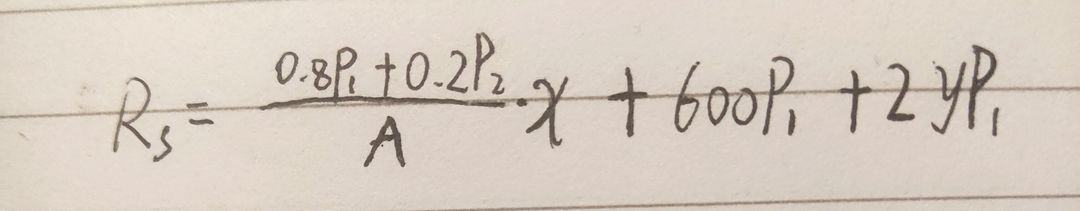 R₅ = (0.8P₁ + 0.2P₂)/A · x + 600P₁ + 2yP₁